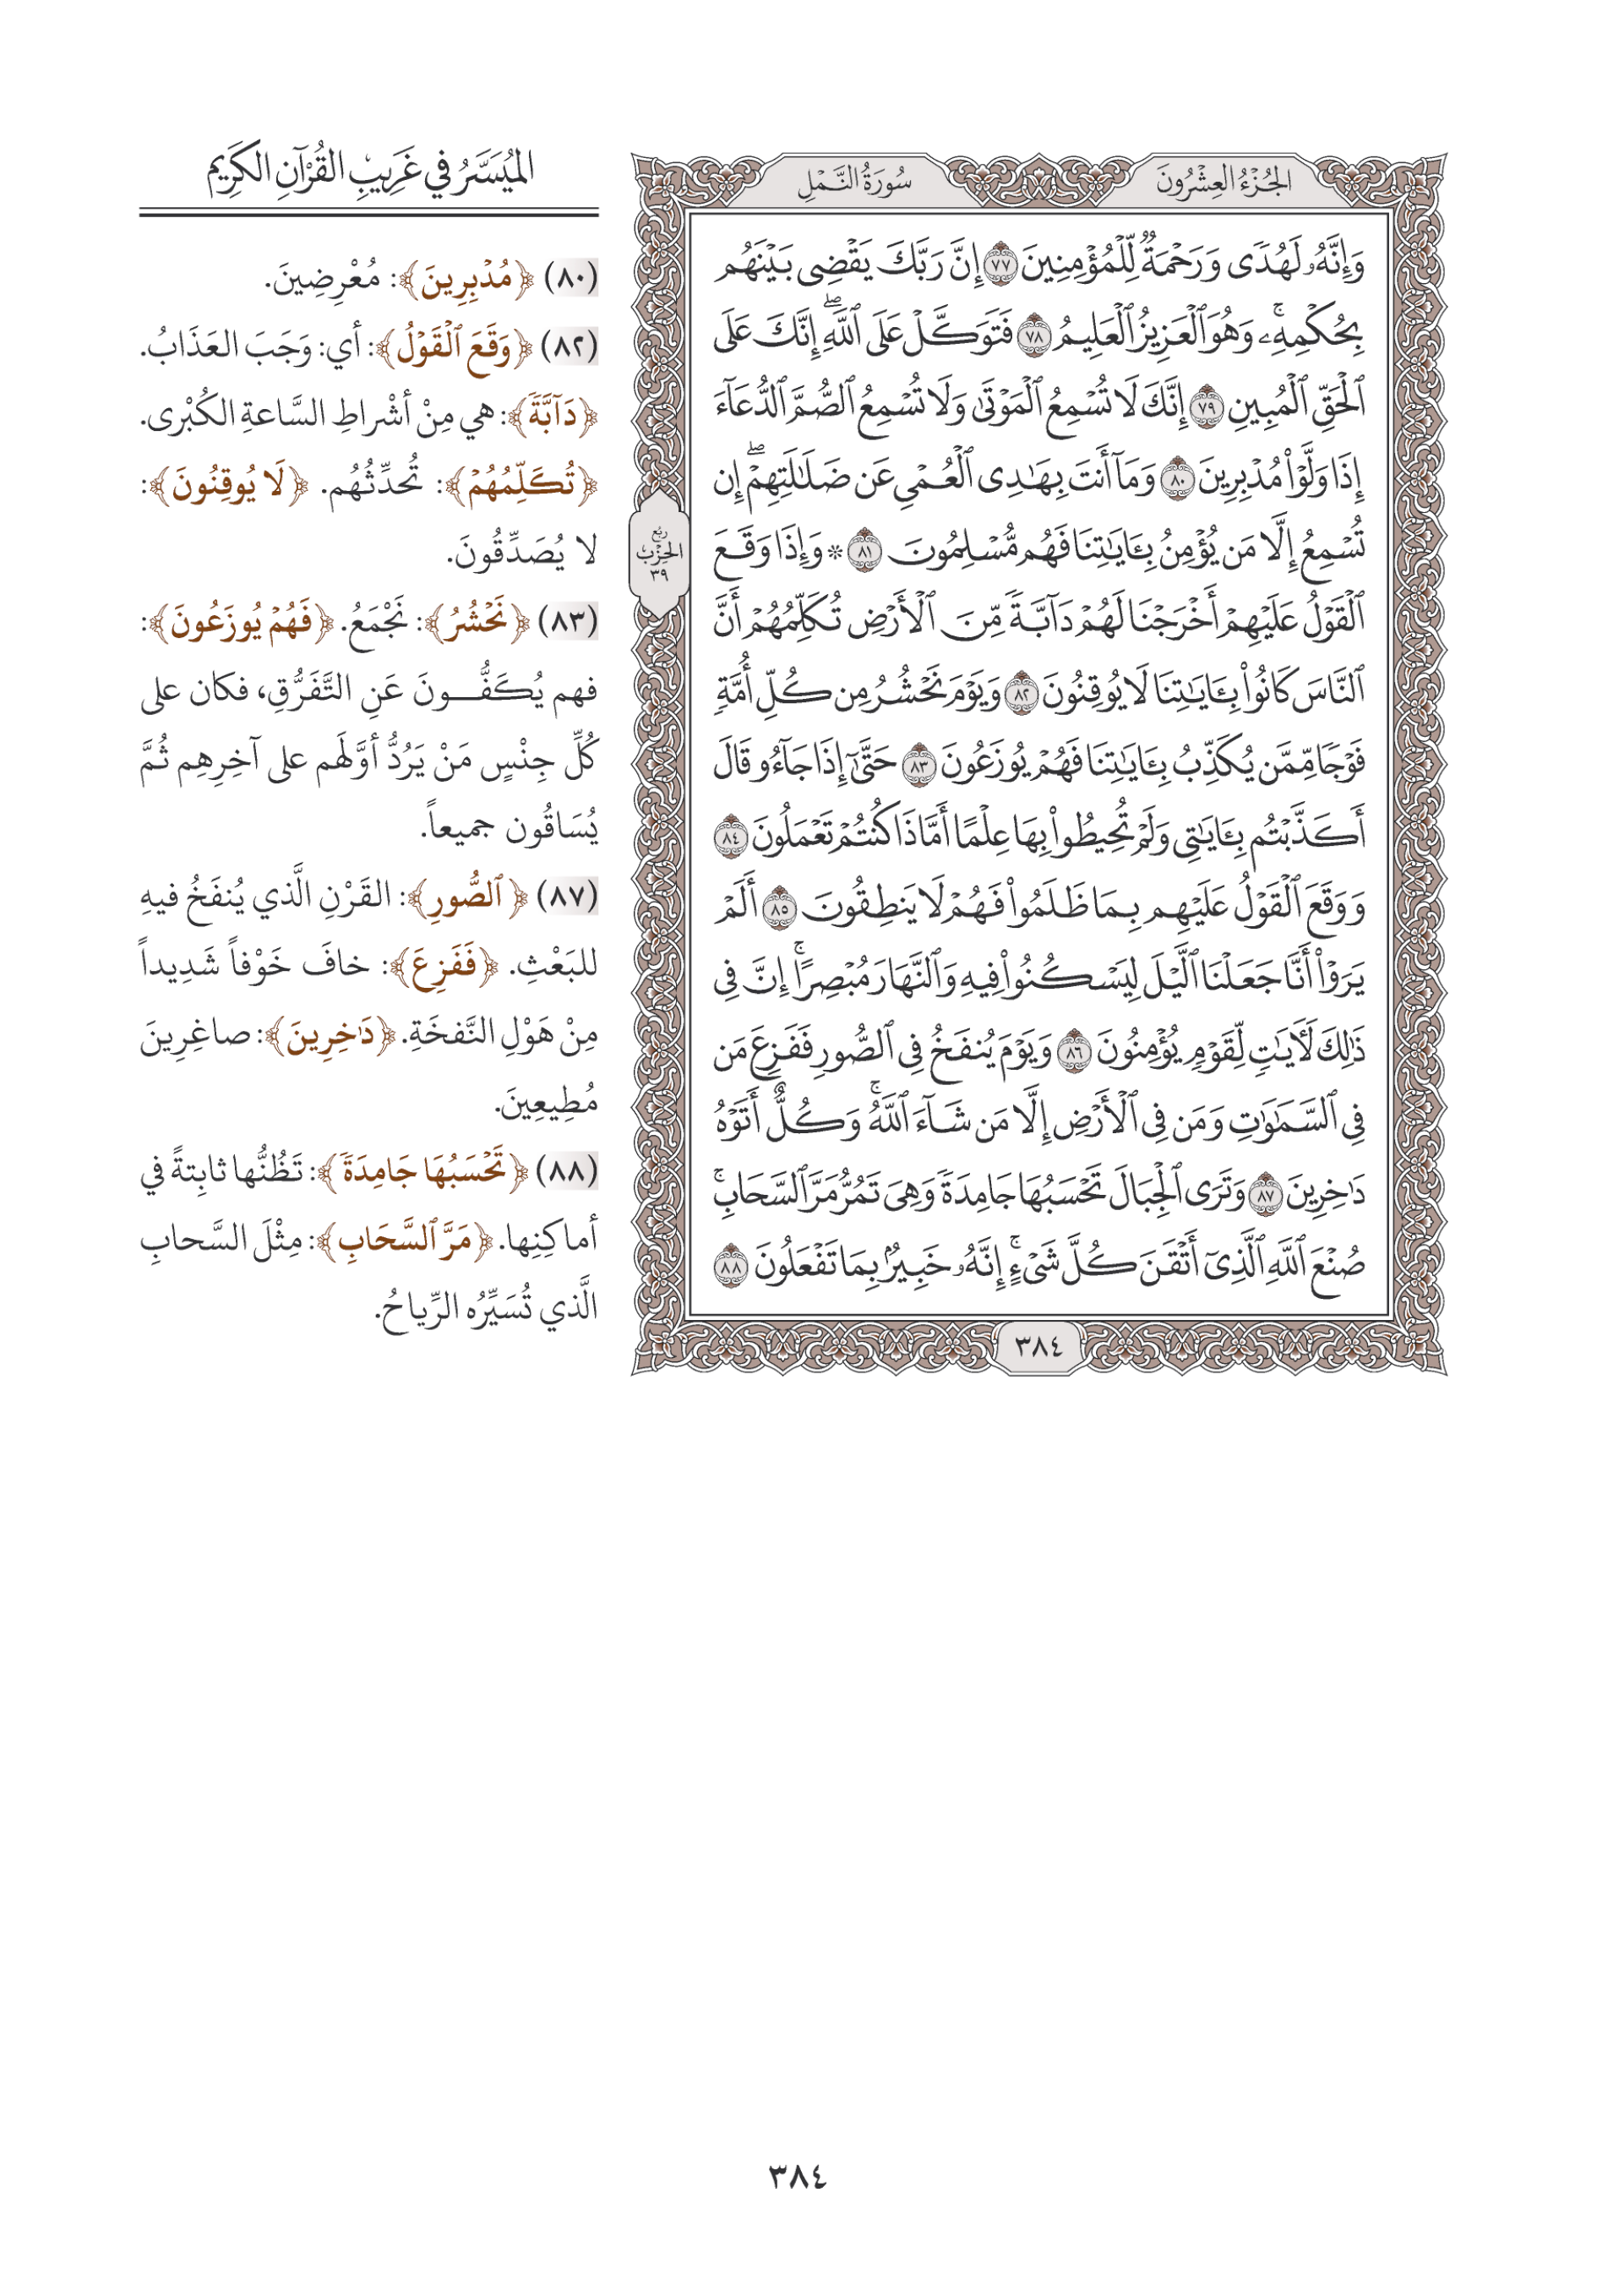 الجُزْءُ العِشْرُونَ
سُورَةُ النَّمْلِ
وَإِنَّهُۥ لَهُدًى وَرَحْمَةٌ لِّلْمُؤْمِنِينَ ٧٧ إِنَّ رَبَّكَ يَقْضِى بَيْنَهُم
بِحُكْمِهِۦۚ وَهُوَ ٱلْعَزِيزُ ٱلْعَلِيمُ ٧٨ فَتَوَكَّلْ عَلَى ٱللَّهِۖ إِنَّكَ عَلَى
ٱلْحَقِّ ٱلْمُبِينِ ٧٩ إِنَّكَ لَا تُسْمِعُ ٱلْمَوْتَىٰ وَلَا تُسْمِعُ ٱلصُّمَّ ٱلدُّعَآءَ
إِذَا وَلَّوْا۟ مُدْبِرِينَ ٨٠ وَمَآ أَنتَ بِهَٰدِى ٱلْعُمْىِ عَن ضَلَٰلَتِهِمْۖ إِن
تُسْمِعُ إِلَّا مَن يُؤْمِنُ بِـَٔايَٰتِنَا فَهُم مُّسْلِمُونَ ٨١ * وَإِذَا وَقَعَ
ٱلْقَوْلُ عَلَيْهِمْ أَخْرَجْنَا لَهُمْ دَآبَّةً مِّنَ ٱلْأَرْضِ تُكَلِّمُهُمْ أَنَّ
ٱلنَّاسَ كَانُوا۟ بِـَٔايَٰتِنَا لَا يُوقِنُونَ ٨٢ وَيَوْمَ نَحْشُرُ مِن كُلِّ أُمَّةٍ
فَوْجًا مِّمَّن يُكَذِّبُ بِـَٔايَٰتِنَا فَهُمْ يُوزَعُونَ ٨٣ حَتَّىٰٓ إِذَا جَآءُو قَالَ
أَكَذَّبْتُم بِـَٔايَٰتِى وَلَمْ تُحِيطُوا۟ بِهَا عِلْمًا أَمَّاذَا كُنتُمْ تَعْمَلُونَ ٨٤
وَوَقَعَ ٱلْقَوْلُ عَلَيْهِم بِمَا ظَلَمُوا۟ فَهُمْ لَا يَنطِقُونَ ٨٥ أَلَمْ
يَرَوْا۟ أَنَّا جَعَلْنَا ٱلَّيْلَ لِيَسْكُنُوا۟ فِيهِ وَٱلنَّهَارَ مُبْصِرًاۚ إِنَّ فِى
ذَٰلِكَ لَـَٔايَٰتٍ لِّقَوْمٍ يُؤْمِنُونَ ٨٦ وَيَوْمَ يُنفَخُ فِى ٱلصُّورِ فَفَزِعَ مَن
فِى ٱلسَّمَٰوَٰتِ وَمَن فِى ٱلْأَرْضِ إِلَّا مَن شَآءَ ٱللَّهُۚ وَكُلٌّ أَتَوْهُ
دَٰخِرِينَ ٨٧ وَتَرَى ٱلْجِبَالَ تَحْسَبُهَا جَامِدَةً وَهِىَ تَمُرُّ مَرَّ ٱلسَّحَابِۚ
صُنْعَ ٱللَّهِ ٱلَّذِىٓ أَتْقَنَ كُلَّ شَىْءٍۚ إِنَّهُۥ خَبِيرٌۢ بِمَا تَفْعَلُونَ ٨٨
٣٨٤
ربع
الحزب
٣٩
المُيَسَّرُ في غَرِيبِ القُرْآنِ الكَرِيمِ
(٨٠) ﴿مُدْبِرِينَ﴾: مُعْرِضِينَ.
(٨٢) ﴿وَقَعَ ٱلْقَوْلُ﴾: أي: وَجَبَ العَذَابُ.
﴿دَآبَّةً﴾: هي مِنْ أشْراطِ السَّاعةِ الكُبْرى.
﴿تُكَلِّمُهُمْ﴾: تُحدِّثُهُم. ﴿لَا يُوقِنُونَ﴾:
لا يُصَدِّقُونَ.
(٨٣) ﴿نَحْشُرُ﴾: نَجْمَعُ. ﴿فَهُمْ يُوزَعُونَ﴾:
فهم يُكَفُّونَ عَنِ التَّفَرُّقِ، فكان على
كُلِّ جِنْسٍ مَنْ يَرُدُّ أوَّلَهَم على آخِرِهِم ثُمَّ
يُسَاقُون جميعاً.
(٨٧) ﴿ٱلصُّورِ﴾: القَرْنِ الَّذي يُنفَخُ فيهِ
للبَعْثِ. ﴿فَفَزِعَ﴾: خافَ خَوْفاً شَدِيداً
مِنْ هَوْلِ النَّفخَةِ. ﴿دَٰخِرِينَ﴾: صاغِرِينَ
مُطِيعِينَ.
(٨٨) ﴿تَحْسَبُهَا جَامِدَةً﴾: تَظُنُّها ثابِتةً في
أماكِنِها. ﴿مَرَّ ٱلسَّحَابِ﴾: مِثْلَ السَّحابِ
الَّذي تُسَيِّرُه الرِّياحُ.
٣٨٤